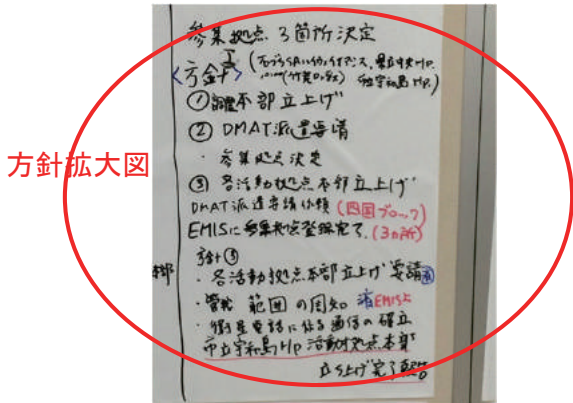 方針拡大図
参集拠点 3箇所決定
<方針>
県立中央HP.
市立宇和島HP.)
① 調整本部立上げ
② DMAT派遣要請
・参集拠点決定
③ 各活動拠点本部立上げ
DMAT派遣要請依頼 (四国ブロック)
EMISに参集拠点登録完了. (3ヵ所)
方針③
本部
・各活動拠点本部立上げ要請 済
・管轄 範囲の周知 済EMIS上
・衛星電話に係る通信の確立
市立宇和島HP 活動拠点本部
立ち上げ完了報告